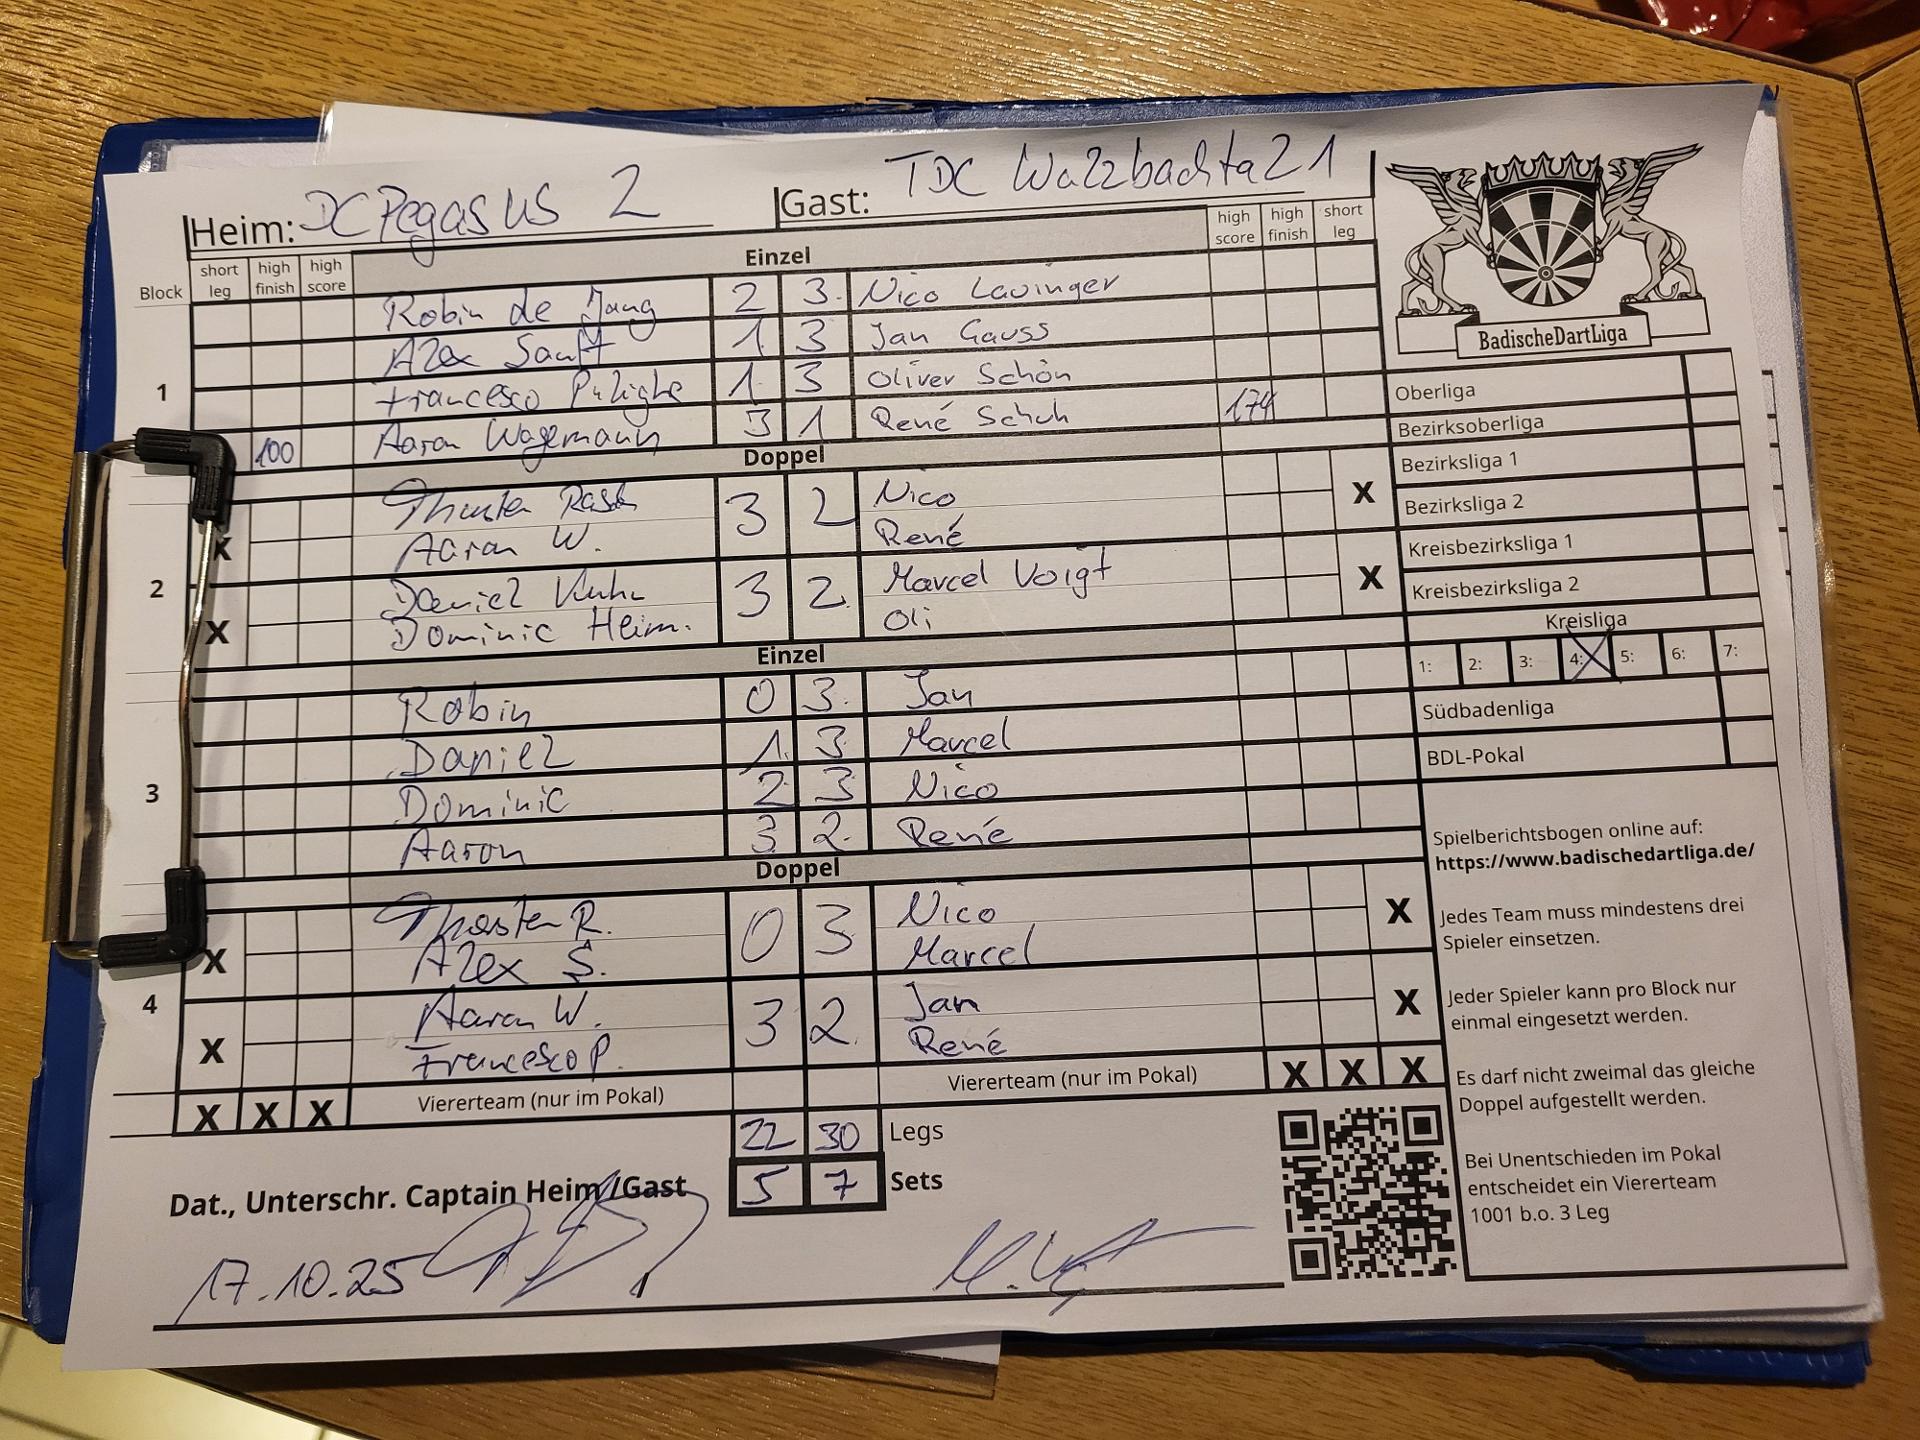 Heim: DC Pegasus 2 Gast: TDC Walzbachtal 1
Block short leg high finish high score Einzel high score high finish short leg
1
Robin de Jong 2 3 Nico Lavinger
Alex Sanft 1 3 Jan Gauss
Francesco Pulighe 1 3 Oliver Schön
100 Aaron Wagemann 3 1 René Schuh 174
Doppel
2
Thorsten Rasch 3 2 Nico X
X Aaron W. René
Daniel Kuhn 3 2 Marcel Voigt X
X Dominic Heim. Oli
Einzel
3
Robin 0 3 Jan
Daniel 1 3 Marcel
Dominic 2 3 Nico
Aaron 3 2 René
Doppel
4
Thorsten R. 0 3 Nico X
X Alex S. Marcel
Aaron W. 3 2 Jan X
X Francesco P. René
X X X Viererteam (nur im Pokal) Viererteam (nur im Pokal) X X X
22 30 Legs
5 7 Sets
Dat., Unterschr. Captain Heim/Gast
17.10.25
BadischeDartLiga
Oberliga
Bezirksoberliga
Bezirksliga 1
Bezirksliga 2
Kreisbezirksliga 1
Kreisbezirksliga 2
Kreisliga
1: 2: 3: 4: X 5: 6: 7:
Südbadenliga
BDL-Pokal
Spielberichtsbogen online auf:
https://www.badischedartliga.de/
Jedes Team muss mindestens drei
Spieler einsetzen.
Jeder Spieler kann pro Block nur
einmal eingesetzt werden.
Es darf nicht zweimal das gleiche
Doppel aufgestellt werden.
Bei Unentschieden im Pokal
entscheidet ein Viererteam
1001 b.o. 3 Leg